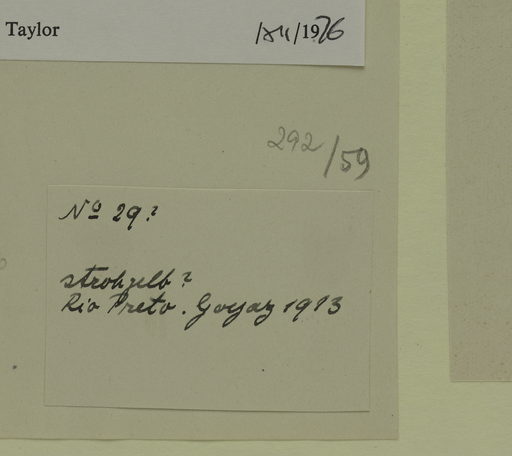 Taylor /XII/1976
292/59
No 29?
strohgelb?
Rio Preto. Goyaz 1913